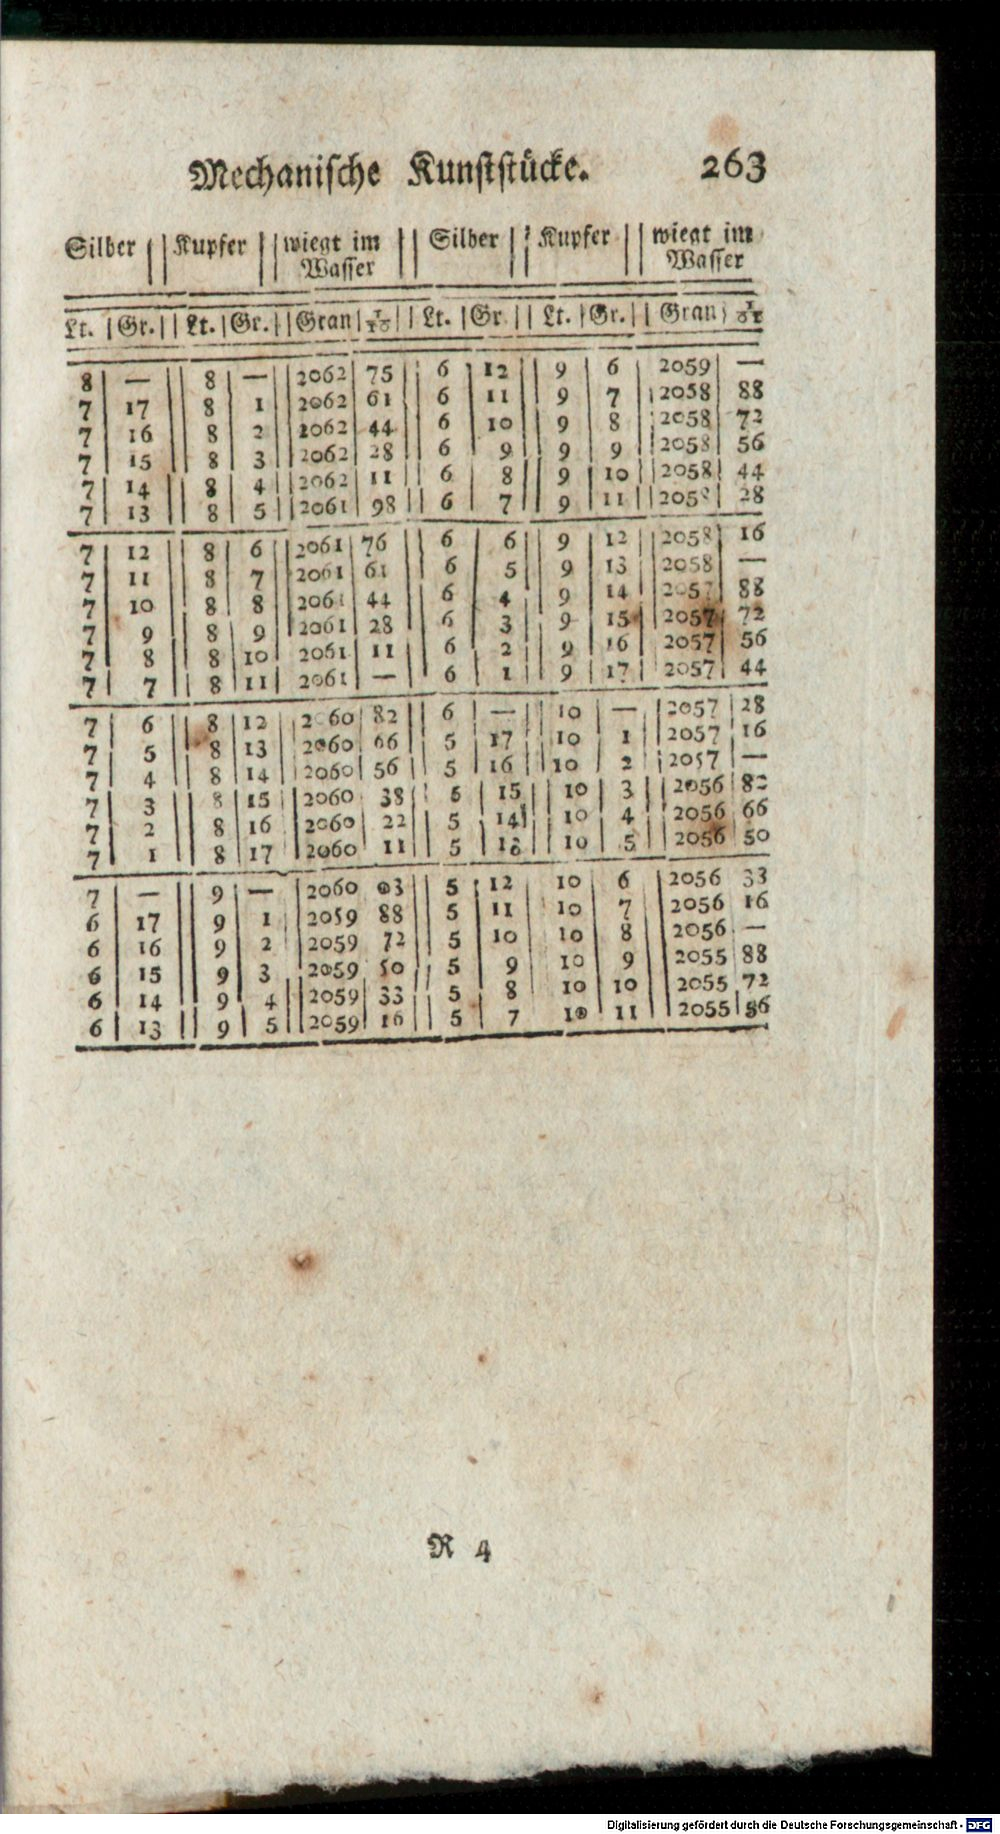 Mechanische Kunststücke. 263
Silber || Kupfer || wiegt im Wasser || Silber || Kupfer || wiegt im Wasser
Lt. | Gr. || Lt. | Gr. || Gran | || Lt. | Gr. || Lt. | Gr. || Gran |
8 | — || 8 | — || 2062 | 75 || 6 | 12 || 9 | 6 || 2059 | —
7 | 17 || 8 | 1 || 2062 | 61 || 6 | 11 || 9 | 7 || 2058 | 88
7 | 16 || 8 | 2 || 2062 | 44 || 6 | 10 || 9 | 8 || 2058 | 72
7 | 15 || 8 | 3 || 2062 | 28 || 6 | 9 || 9 | 9 || 2058 | 56
7 | 14 || 8 | 4 || 2062 | 11 || 6 | 8 || 9 | 10 || 2058 | 44
7 | 13 || 8 | 5 || 2061 | 98 || 6 | 7 || 9 | 11 || 2058 | 28
7 | 12 || 8 | 6 || 2061 | 76 || 6 | 6 || 9 | 12 || 2058 | 16
7 | 11 || 8 | 7 || 2061 | 61 || 6 | 5 || 9 | 13 || 2058 | —
7 | 10 || 8 | 8 || 2061 | 44 || 6 | 4 || 9 | 14 || 2057 | 88
7 | 9 || 8 | 9 || 2061 | 28 || 6 | 3 || 9 | 15 || 2057 | 72
7 | 8 || 8 | 10 || 2061 | 11 || 6 | 2 || 9 | 16 || 2057 | 56
7 | 7 || 8 | 11 || 2061 | — || 6 | 1 || 9 | 17 || 2057 | 44
7 | 6 || 8 | 12 || 2060 | 82 || 6 | — || 10 | — || 2057 | 28
7 | 5 || 8 | 13 || 2060 | 66 || 5 | 17 || 10 | 1 || 2057 | 16
7 | 4 || 8 | 14 || 2060 | 56 || 5 | 16 || 10 | 2 || 2057 | —
7 | 3 || 8 | 15 || 2060 | 38 || 5 | 15 || 10 | 3 || 2056 | 82
7 | 2 || 8 | 16 || 2060 | 22 || 5 | 14 || 10 | 4 || 2056 | 66
7 | 1 || 8 | 17 || 2060 | 11 || 5 | 13 || 10 | 5 || 2056 | 50
7 | — || 9 | — || 2060 | 03 || 5 | 12 || 10 | 6 || 2056 | 33
6 | 17 || 9 | 1 || 2059 | 88 || 5 | 11 || 10 | 7 || 2056 | 16
6 | 16 || 9 | 2 || 2059 | 72 || 5 | 10 || 10 | 8 || 2056 | —
6 | 15 || 9 | 3 || 2059 | 50 || 5 | 9 || 10 | 9 || 2055 | 88
6 | 14 || 9 | 4 || 2059 | 33 || 5 | 8 || 10 | 10 || 2055 | 72
6 | 13 || 9 | 5 || 2059 | 16 || 5 | 7 || 10 | 11 || 2055 | 56
R 4
Digitalisierung gefördert durch die Deutsche Forschungsgemeinschaft - DFG